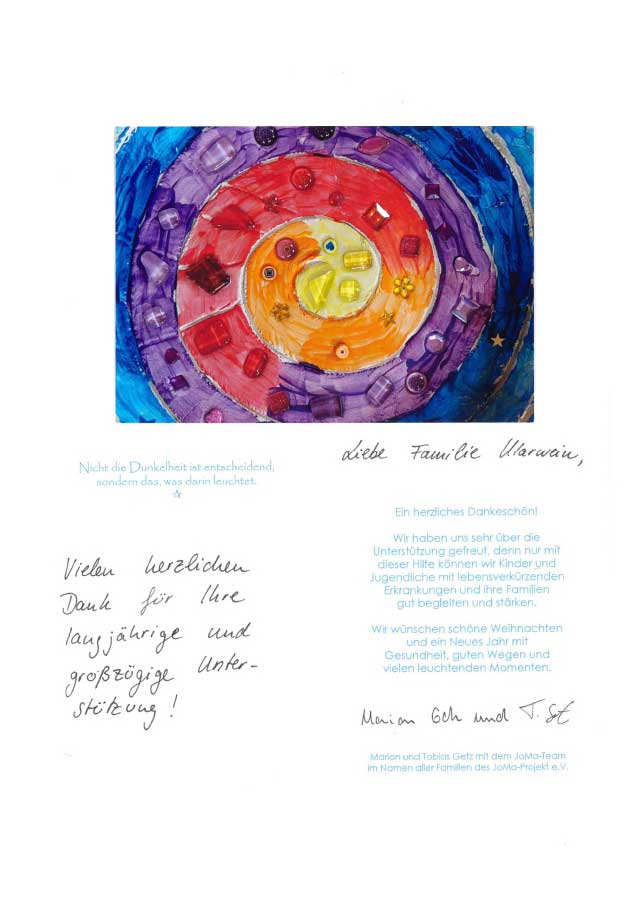 Nicht die Dunkelheit ist entscheidend,
sondern das, was darin leuchtet.
Vielen herzlichen
Dank für Ihre
langjährige und
großzügige Unter-
stützung!
Liebe Familie Ularwein,
Ein herzliches Dankeschön!
Wir haben uns sehr über die
Unterstützung gefreut, denn nur mit
dieser Hilfe können wir Kinder und
Jugendliche mit lebensverkürzenden
Erkrankungen und ihre Familien
gut begleiten und stärken.
Wir wünschen schöne Weihnachten
und ein Neues Jahr mit
Gesundheit, guten Wegen und
vielen leuchtenden Momenten.
Marion und T.
Marion und Tobias Getz mit dem JoMa-Team
im Namen aller Familien des JoMa-Projekt e.V.